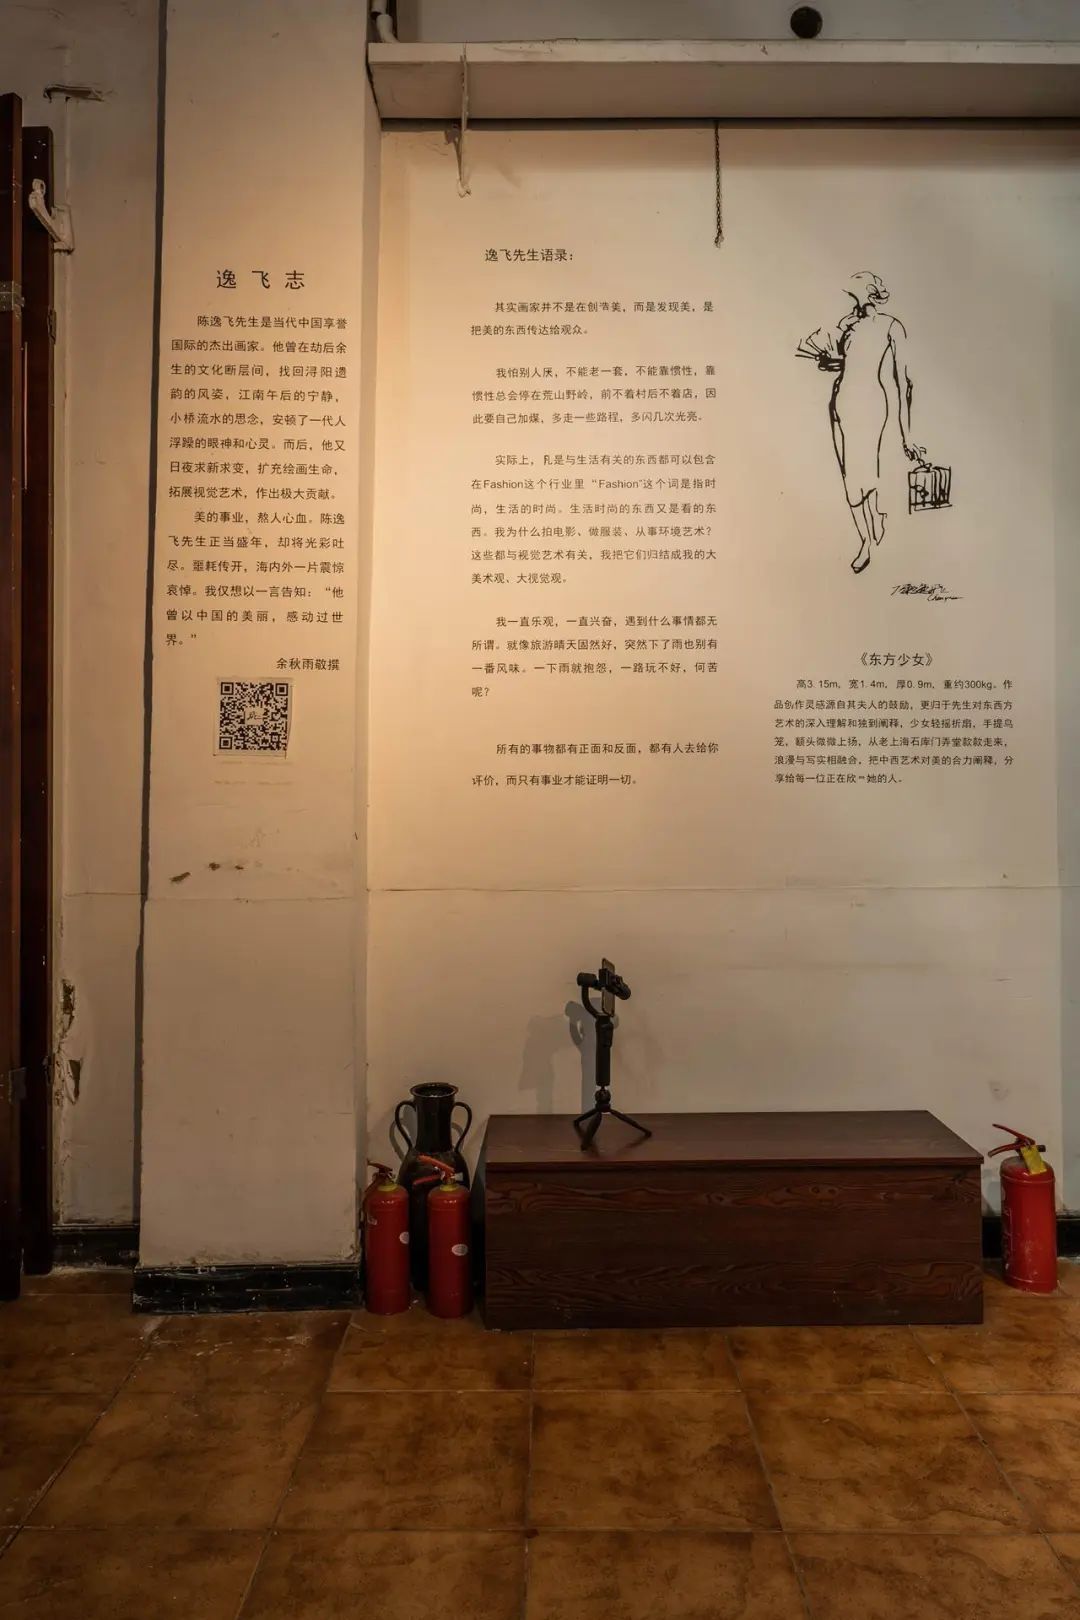 逸飞志
陈逸飞先生是当代中国享誉
国际的杰出画家。他曾在劫后余
生的文化断层间，找回浔阳遗
韵的风姿，江南午后的宁静，
小桥流水的思念，安顿了一代人
浮躁的眼神和心灵。而后，他又
日夜求新求变，扩充绘画生命，
拓展视觉艺术，作出极大贡献。
美的事业，熬人心血。陈逸
飞先生正当盛年，却将光彩吐
尽。噩耗传开，海内外一片震惊
哀悼。我仅想以一言告知：“他
曾以中国的美丽，感动过世
界。”
余秋雨敬撰
逸飞先生语录：
其实画家并不是在创造美，而是发现美，是
把美的东西传达给观众。
我怕别人厌，不能老一套，不能靠惯性，靠
惯性总会停在荒山野岭，前不着村后不着店，因
此要自己加煤，多走一些路程，多闪几次光亮。
实际上，凡是与生活有关的东西都可以包含
在Fashion这个行业里“Fashion”这个词是指时
尚，生活的时尚。生活时尚的东西又是看的东
西。我为什么拍电影、做服装、从事环境艺术？
这些都与视觉艺术有关，我把它们归结成我的大
美术观、大视觉观。
我一直乐观，一直兴奋，遇到什么事情都无
所谓。就像旅游晴天固然好，突然下了雨也别有
一番风味。一下雨就抱怨，一路玩不好，何苦
呢？
所有的事物都有正面和反面，都有人去给你
评价，而只有事业才能证明一切。
《东方少女》
高3.15m，宽1.4m，厚0.9m，重约300kg。作
品创作灵感源自其夫人的鼓励，更归于先生对东西方
艺术的深入理解和独到阐释，少女轻摇折扇，手提鸟
笼，额头微微上扬，从老上海石库门弄堂款款走来，
浪漫与写实相融合，把中西艺术对美的合力阐释，分
享给每一位正在欣她的人。